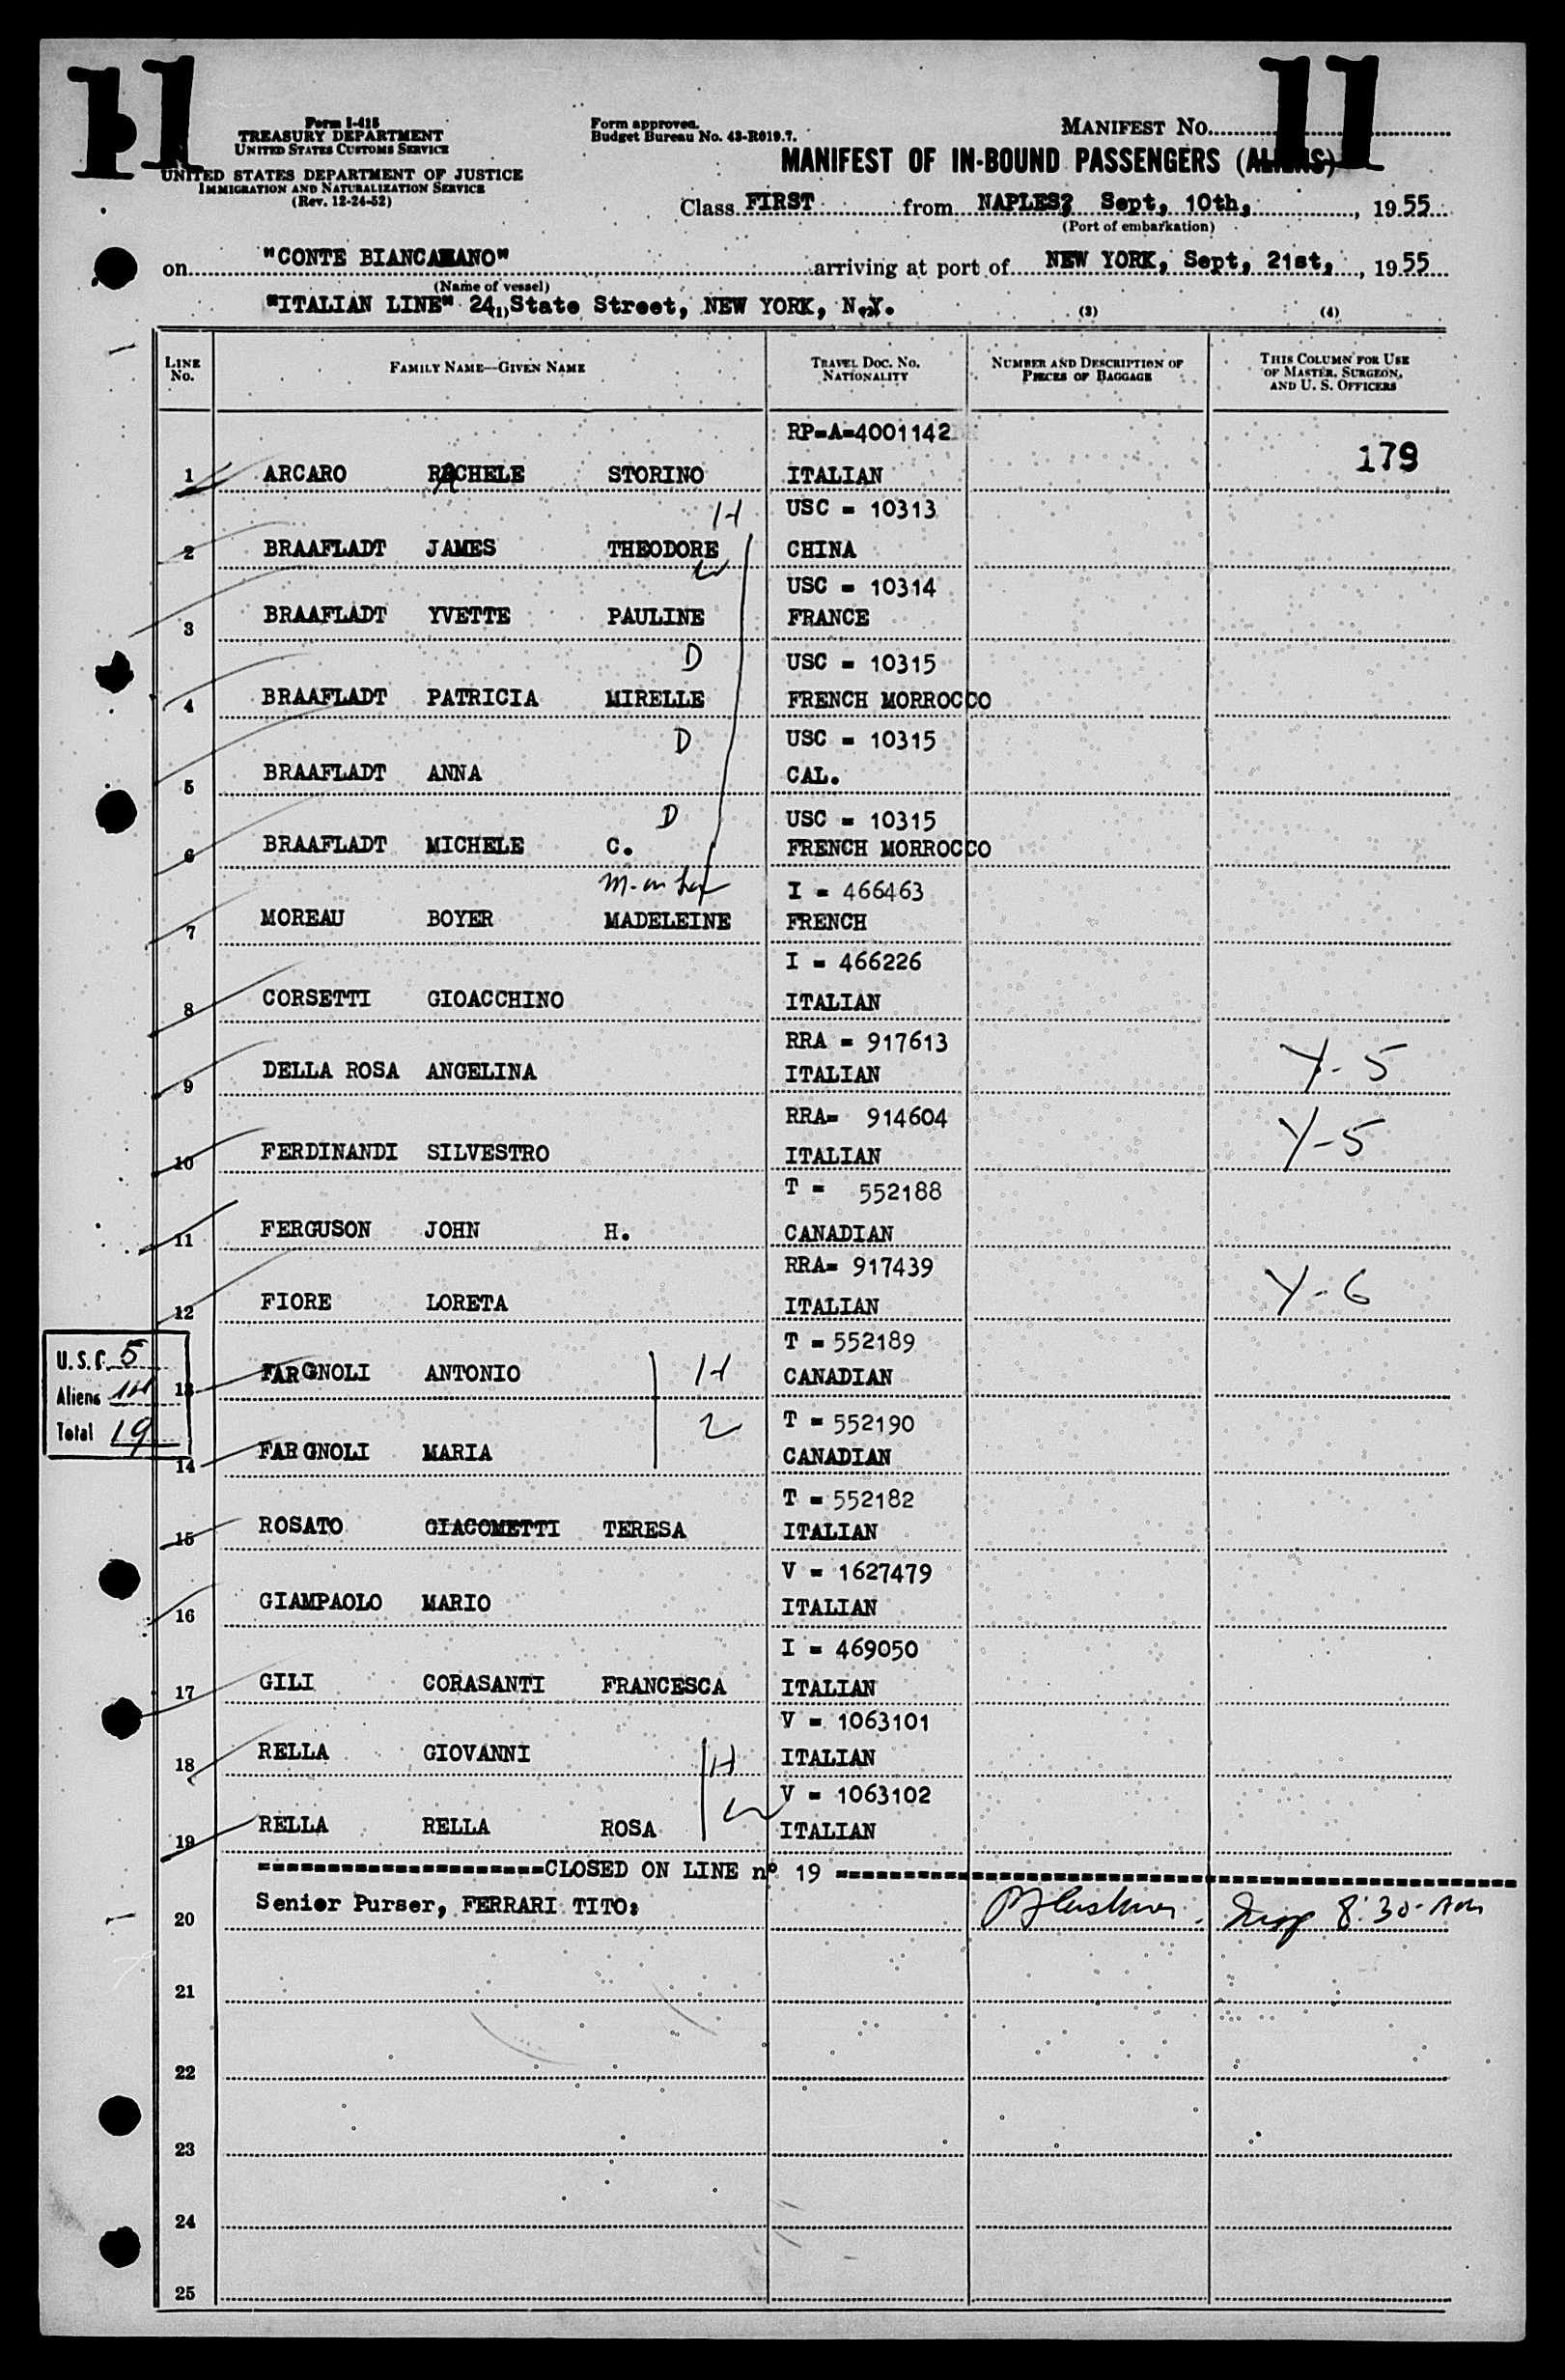 11
11
Form I-418
TREASURY DEPARTMENT
UNITED STATES CUSTOMS SERVICE
UNITED STATES DEPARTMENT OF JUSTICE
IMMIGRATION AND NATURALIZATION SERVICE
(Rev. 12-24-52)
Form approved.
Budget Bureau No. 43-R019.7.
MANIFEST NO.
MANIFEST OF IN-BOUND PASSENGERS (ALIENS)
Class FIRST from NAPLES, Sept, 10th, , 19 55
(Port of embarkation)
on "CONTE BIANCAMANO" arriving at port of NEW YORK, Sept, 21st, , 19 55
(Name of vessel)
"ITALIAN LINE" 24, State Street, NEW YORK, N.Y.
(1) (3) (4)
LINE NO. FAMILY NAME—GIVEN NAME TRAVEL DOC. NO. NATIONALITY NUMBER AND DESCRIPTION OF PIECES OF BAGGAGE THIS COLUMN FOR USE OF MASTER, SURGEON, AND U. S. OFFICERS
RP=A=4001142
179
1 ARCARO RACHELE STORINO ITALIAN
H USC = 10313
2 BRAAFLADT JAMES THEODORE CHINA
W USC = 10314
3 BRAAFLADT YVETTE PAULINE FRANCE
D USC = 10315
4 BRAAFLADT PATRICIA MIRELLE FRENCH MORROCCO
D USC = 10315
5 BRAAFLADT ANNA CAL.
D USC = 10315
6 BRAAFLADT MICHELE C. FRENCH MORROCCO
I = 466463
7 MOREAU BOYER MADELEINE FRENCH
I = 466226
8 CORSETTI GIOACCHINO ITALIAN
RRA = 917613
9 DELLA ROSA ANGELINA ITALIAN Y-5
RRA= 914604
10 FERDINANDI SILVESTRO ITALIAN Y-5
T = 552188
11 FERGUSON JOHN H. CANADIAN
RRA= 917439
12 FIORE LORETA ITALIAN Y-6
T = 552189
13 FARGNOLI ANTONIO H CANADIAN
W T = 552190
14 FARGNOLI MARIA CANADIAN
U.S.C. 5
Aliens 14
Total 19
T = 552182
15 ROSATO GIACOMETTI TERESA ITALIAN
V = 1627479
16 GIAMPAOLO MARIO ITALIAN
I = 469050
17 GILI CORASANTI FRANCESCA ITALIAN
V = 1063101
18 RELLA GIOVANNI H ITALIAN
W V = 1063102
19 RELLA RELLA ROSA ITALIAN
====================CLOSED ON LINE nº 19 ====================
20 Senior Purser, FERRARI TITO: 8:30 AM
21
22
23
24
25